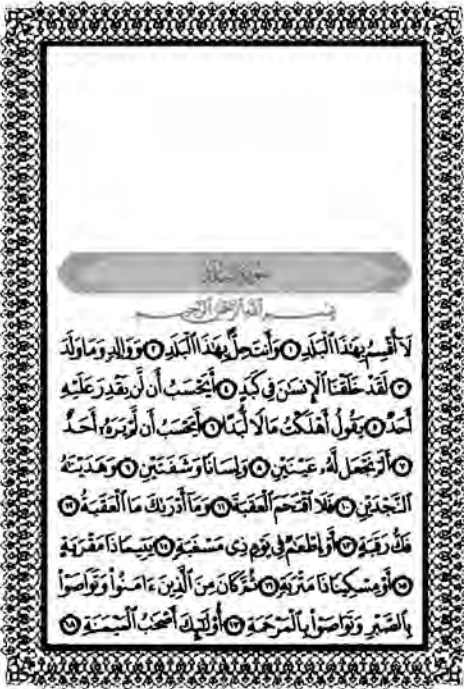 سورة البلد
بسم الله الرحمن الرحيم
لَآ أُقْسِمُ بِهَٰذَا ٱلْبَلَدِ ۝١ وَأَنتَ حِلٌّۢ بِهَٰذَا ٱلْبَلَدِ ۝٢ وَوَالِدٍ وَمَا وَلَدَ
۝٣ لَقَدْ خَلَقْنَا ٱلْإِنسَٰنَ فِى كَبَدٍ ۝٤ أَيَحْسَبُ أَن لَّن يَقْدِرَ عَلَيْهِ
أَحَدٌ ۝٥ يَقُولُ أَهْلَكْتُ مَالًا لُّبَدًا ۝٦ أَيَحْسَبُ أَن لَّمْ يَرَهُۥٓ أَحَدٌ
۝٧ أَلَمْ نَجْعَل لَّهُۥ عَيْنَيْنِ ۝٨ وَلِسَانًا وَشَفَتَيْنِ ۝٩ وَهَدَيْنَٰهُ
ٱلنَّجْدَيْنِ ۝١٠ فَلَا ٱقْتَحَمَ ٱلْعَقَبَةَ ۝١١ وَمَآ أَدْرَىٰكَ مَا ٱلْعَقَبَةُ ۝١٢
فَكُّ رَقَبَةٍ ۝١٣ أَوْ إِطْعَٰمٌ فِى يَوْمٍ ذِى مَسْغَبَةٍ ۝١٤ يَتِيمًا ذَا مَقْرَبَةٍ
۝١٥ أَوْ مِسْكِينًا ذَا مَتْرَبَةٍ ۝١٦ ثُمَّ كَانَ مِنَ ٱلَّذِينَ ءَامَنُوا۟ وَتَوَاصَوْا۟
بِٱلصَّبْرِ وَتَوَاصَوْا۟ بِٱلْمَرْحَمَةِ ۝١٧ أُو۟لَٰٓئِكَ أَصْحَٰبُ ٱلْمَيْمَنَةِ ۝١٨